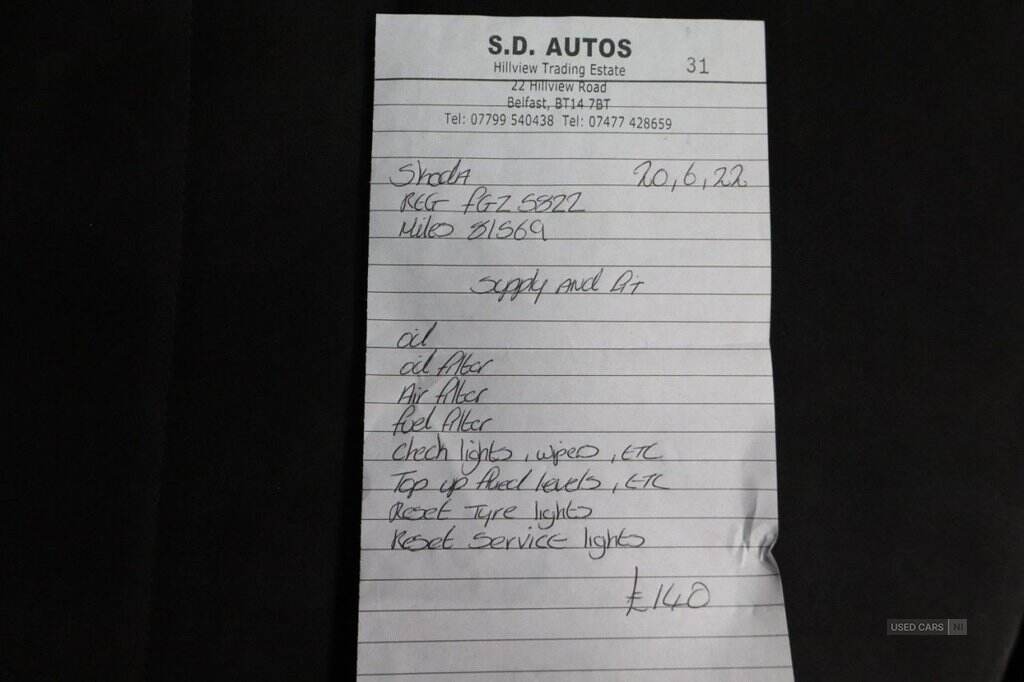 S.D. AUTOS
Hillview Trading Estate 31
22 Hillview Road
Belfast, BT14 7BT
Tel: 07799 540438 Tel: 07477 428659
Skoda 20,6,22
REG FGZ 5822
Miles 81569
Supply and fit
oil
oil filter
Air filter
fuel filter
Check lights, wipes, ETC
Top up flued levels, ETC
Reset Tyre lights
Reset Service lights
£140
USED CARS NI